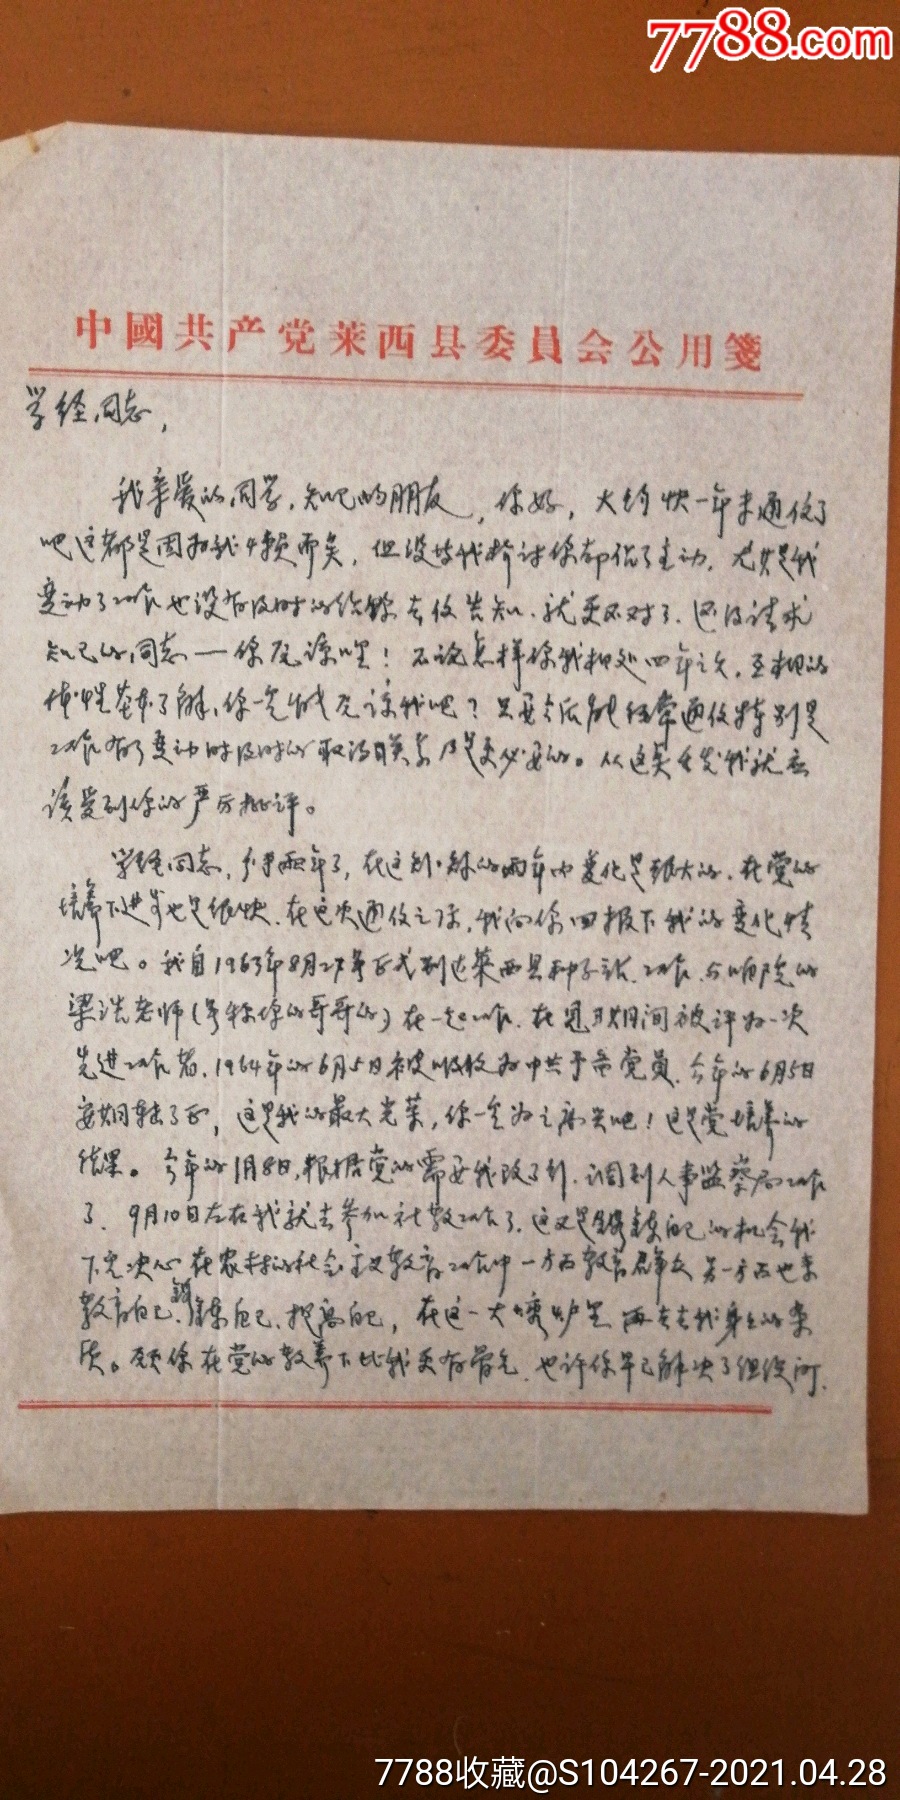 7788.com
中國共产党莱西县委員会公用箋
学经同志，
我亲爱的同学，知己的朋友，你好，大约快一年未通信了
吧这都是因为我 懒而矣，但没等我检讨你却佔了主动。尤其是我
变动了工作也没有及时的给 去信告知，就更不对了。还得请求
知己的同志一你原谅哩！不说怎样你我相处四年之久，互相的
性基本了解，你一定 原谅我吧？只要今后能经常通信特别是
工作有了变动时及时的取得联系 是更必要的。从这 我就应
该受到你的严厉批评。
学经同志， 两年了，在这别 的两年内变化是很大的，在党的
培养下进步也是很快，在这次通信之际，我向你回报下我的变化情
况吧。我自1963年8月27号正式到达莱西县种子站工作，与 院的
梁 老师(号称 的哥哥的)在一起工作，在 期间被评为一次
先进工作者，1964年的6月5日被吸收为中共予备党员，今年的6月5日
按期转了正，这是我的最大光荣，你一定为之高兴吧！这是党培养的
结果。今年的1月8日，根据党的需要我改了行，调到人事监察局工作
了，9月10日左右我就去参加社教工作了，这又是锻炼自己的机会我
下定决心在农村的社会主义教育工作中一方面教育群众另一方面也来
教育自己、锻炼自己、提高自己，在这一大熔炉里再去去我身上的杂
质。 你在党的教养下比我更有骨气，也许你早已解决了组织问
7788收藏@S104267-2021.04.28